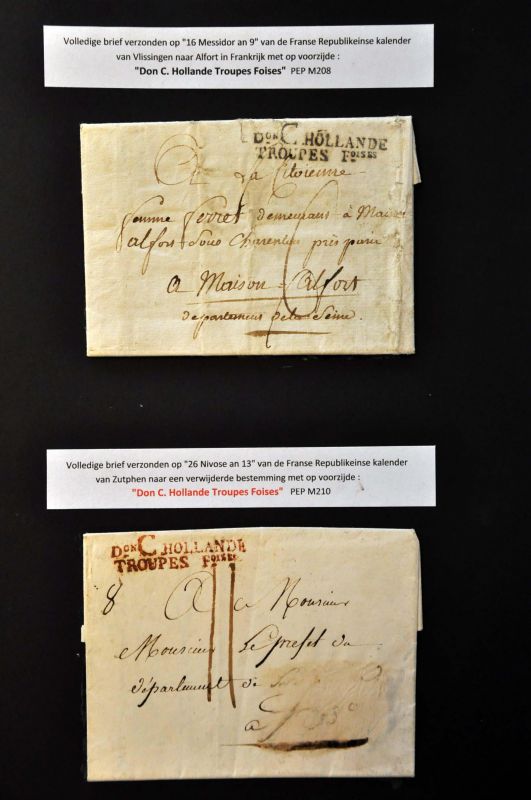 Volledige brief verzonden op "16 Messidor an 9" van de Franse Republikeinse kalender
van Vlissingen naar Alfort in Frankrijk met op voorzijde :
"Don C. Hollande Troupes Foises" PEP M208
DON C HOLLANDE
TROUPES FOISES
A La Citoienne
femme Verret demeurans à
alfort Sous Charenton près paris
A Maison - Alfort
département de la Seine.
Volledige brief verzonden op "26 Nivose an 13" van de Franse Republikeinse kalender
van Zutphen naar een verwijderde bestemming met op voorzijde :
"Don C. Hollande Troupes Foises" PEP M210
DON C HOLLANDE
TROUPES FOISES
8 A Monsieur
Monsieur Le prefet du
département de
à